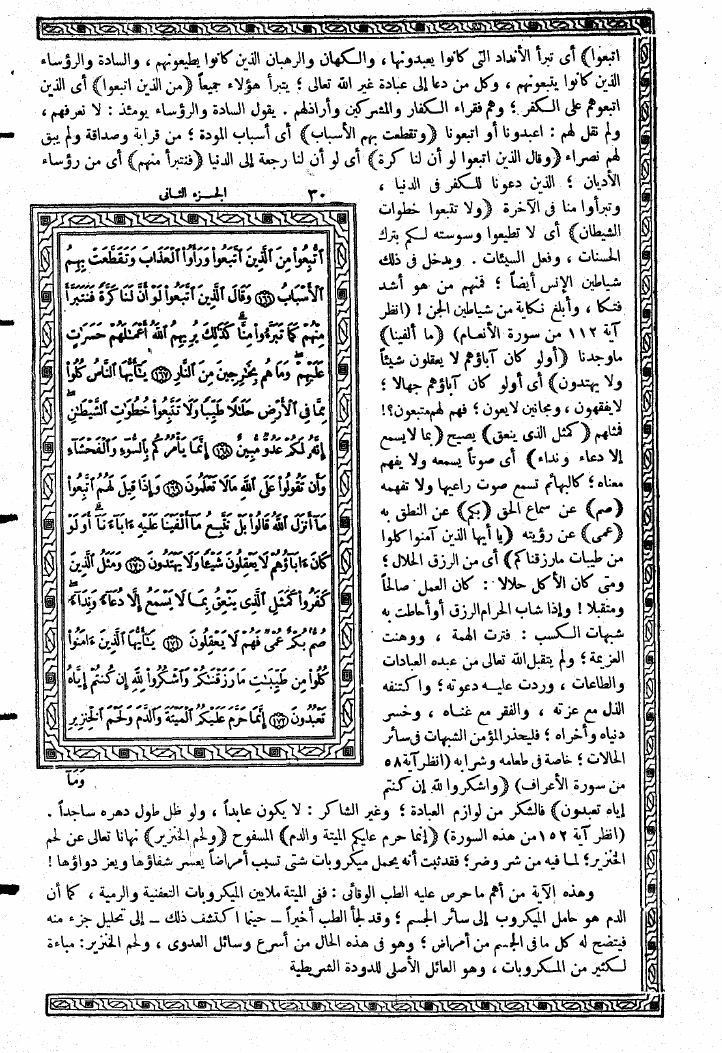 اتبعوا) أى تبرأ الأنداد التى كانوا يعبدونها، والكهان والرهبان الذين كانوا يطيعونهم، والسادة والرؤساء
الذين كانوا يتبعونهم، وكل من دعا إلى عبادة غير الله تعالى؛ يتبرأ هؤلاء جميعاً (من الذين اتبعوا) أى الذين
اتبعوهم على الكفر؛ وهم فقراء الكفار والمشركين وأراذلهم. يقول السادة والرؤساء يومئذ: لا نعرفهم،
ولم نقل لهم: اعبدونا أو اتبعونا (وتقطعت بهم الأسباب) أى أسباب المودة؛ من قرابة وصداقة ولم يبق
لهم نصراء (وقال الذين اتبعوا لو أن لنا كرة) أى لو أن لنا رجعة إلى الدنيا (فنتبرأ منهم) أى من رؤساء
الأديان؛ الذين دعونا للكفر فى الدنيا،
وتبرأوا منا فى الآخرة (ولا تتبعوا خطوات
الشيطان) أى لا تطيعوا وسوسته لكم بترك
الحسنات، وفعل السيئات. ويدخل فى ذلك
شياطين الإنس أيضاً؛ فمنهم من هو أشد
فتكا، وأبلغ نكاية من شياطين الجن! (انظر
آية ١١٢ من سورة الأنعام) (ما ألفينا)
ماوجدنا (أولو كان آباؤهم لا يعقلون شيئاً
ولا يهتدون) أى أولو كان آباؤهم جهالا؛
لايفقهون، ومجانين لايعون؛ فهم لهم متبعون؟!
فمثلهم (كمثل الذى ينعق) يصيح (بما لايسمع
إلا دعاء ونداء) أى صوتاً يسمعه ولا يفهم
معناه؛ كالبهائم تسمع صوت راعيها ولا تفهمه
(صم) عن سماع الحق (بكم) عن النطق به
(عمى) عن رؤيته (يا أيها الذين آمنوا كلوا
من طيبات مارزقناكم) أى من الرزق الحلال؛
ومتى كان الأكل حلالا: كان العمل صالحاً
ومتقبلا! وإذا شاب الحرام الرزق أوأحاطت به
شبهات الكسب: فترت الهمة، ووهنت
العزيمة؛ ولم يتقبل الله تعالى من عبده العبادات
والطاعات، وردت عليه دعوته؛ واكتنفه
الذل مع عزته، والفقر مع غناه، وخسر
دنياه وأخراه؛ فليحذر المؤمن الشبهات فى سائر
الحالات؛ خاصة فى طعامه وشرابه (انظرآية ٥٨
من سورة الأعراف) (واشكروا لله إن كنتم
إياه تعبدون) فالشكر من لوازم العبادة؛ وغير الشاكر: لا يكون عابداً، ولو ظل طول دهره ساجداً.
(انظر آية ١٥٢ من هذه السورة) (إنما حرم عليكم الميتة والدم) المسفوح (ولحم الخنزير) نهانا تعالى عن لحم
الخنزير؛ لما فيه من شر وضر؛ فقدثبت أنه يحمل ميكروبات شتى تسبب أمراضاً يعسر شفاؤها ويعز دواؤها!
وهذه الآية من أهم ماحرص عليه الطب الوقائى: ففى الميتة ملايين الميكروبات التعفنية والرمية، كما أن
الدم هو حامل الميكروب إلى سائر الجسم؛ وقد لجأ الطب أخيراً — حينما اكتشف ذلك — إلى تحليل جزء منه
فيتضح له كل مافى الجسم من أمراض؛ وهو فى هذه الحال من أسرع وسائل العدوى، ولحم الخنزير: مباءة
لكثير من المكروبات، وهو العائل الأصلى للدودة الشريطية
٣٠ الجزء الثانى
ٱتُّبِعُوا۟ مِنَ ٱلَّذِينَ ٱتَّبَعُوا۟ وَرَأَوُا۟ ٱلْعَذَابَ وَتَقَطَّعَتْ بِهِمُ
ٱلْأَسْبَابُ ١٦٦ وَقَالَ ٱلَّذِينَ ٱتَّبَعُوا۟ لَوْ أَنَّ لَنَا كَرَّةً فَنَتَبَرَّأَ
مِنْهُمْ كَمَا تَبَرَّءُوا۟ مِنَّا كَذَٰلِكَ يُرِيهِمُ ٱللَّهُ أَعْمَٰلَهُمْ حَسَرَٰتٍ
عَلَيْهِمْ وَمَا هُم بِخَٰرِجِينَ مِنَ ٱلنَّارِ ١٦٧ يَٰٓأَيُّهَا ٱلنَّاسُ كُلُوا۟
مِمَّا فِى ٱلْأَرْضِ حَلَٰلًا طَيِّبًا وَلَا تَتَّبِعُوا۟ خُطُوَٰتِ ٱلشَّيْطَٰنِ
إِنَّهُۥ لَكُمْ عَدُوٌّ مُّبِينٌ ١٦٨ إِنَّمَا يَأْمُرُكُم بِٱلسُّوٓءِ وَٱلْفَحْشَآءِ
وَأَن تَقُولُوا۟ عَلَى ٱللَّهِ مَا لَا تَعْلَمُونَ ١٦٩ وَإِذَا قِيلَ لَهُمُ ٱتَّبِعُوا۟
مَآ أَنزَلَ ٱللَّهُ قَالُوا۟ بَلْ نَتَّبِعُ مَآ أَلْفَيْنَا عَلَيْهِ ءَابَآءَنَآ أَوَلَوْ
كَانَ ءَابَآؤُهُمْ لَا يَعْقِلُونَ شَيْـًٔا وَلَا يَهْتَدُونَ ١٧٠ وَمَثَلُ ٱلَّذِينَ
كَفَرُوا۟ كَمَثَلِ ٱلَّذِى يَنْعِقُ بِمَا لَا يَسْمَعُ إِلَّا دُعَآءً وَنِدَآءً
صُمٌّۢ بُكْمٌ عُمْىٌ فَهُمْ لَا يَعْقِلُونَ ١٧١ يَٰٓأَيُّهَا ٱلَّذِينَ ءَامَنُوا۟
كُلُوا۟ مِن طَيِّبَٰتِ مَا رَزَقْنَٰكُمْ وَٱشْكُرُوا۟ لِلَّهِ إِن كُنتُمْ إِيَّاهُ
تَعْبُدُونَ ١٧٢ إِنَّمَا حَرَّمَ عَلَيْكُمُ ٱلْمَيْتَةَ وَٱلدَّمَ وَلَحْمَ ٱلْخِنزِيرِ
وَمَآ